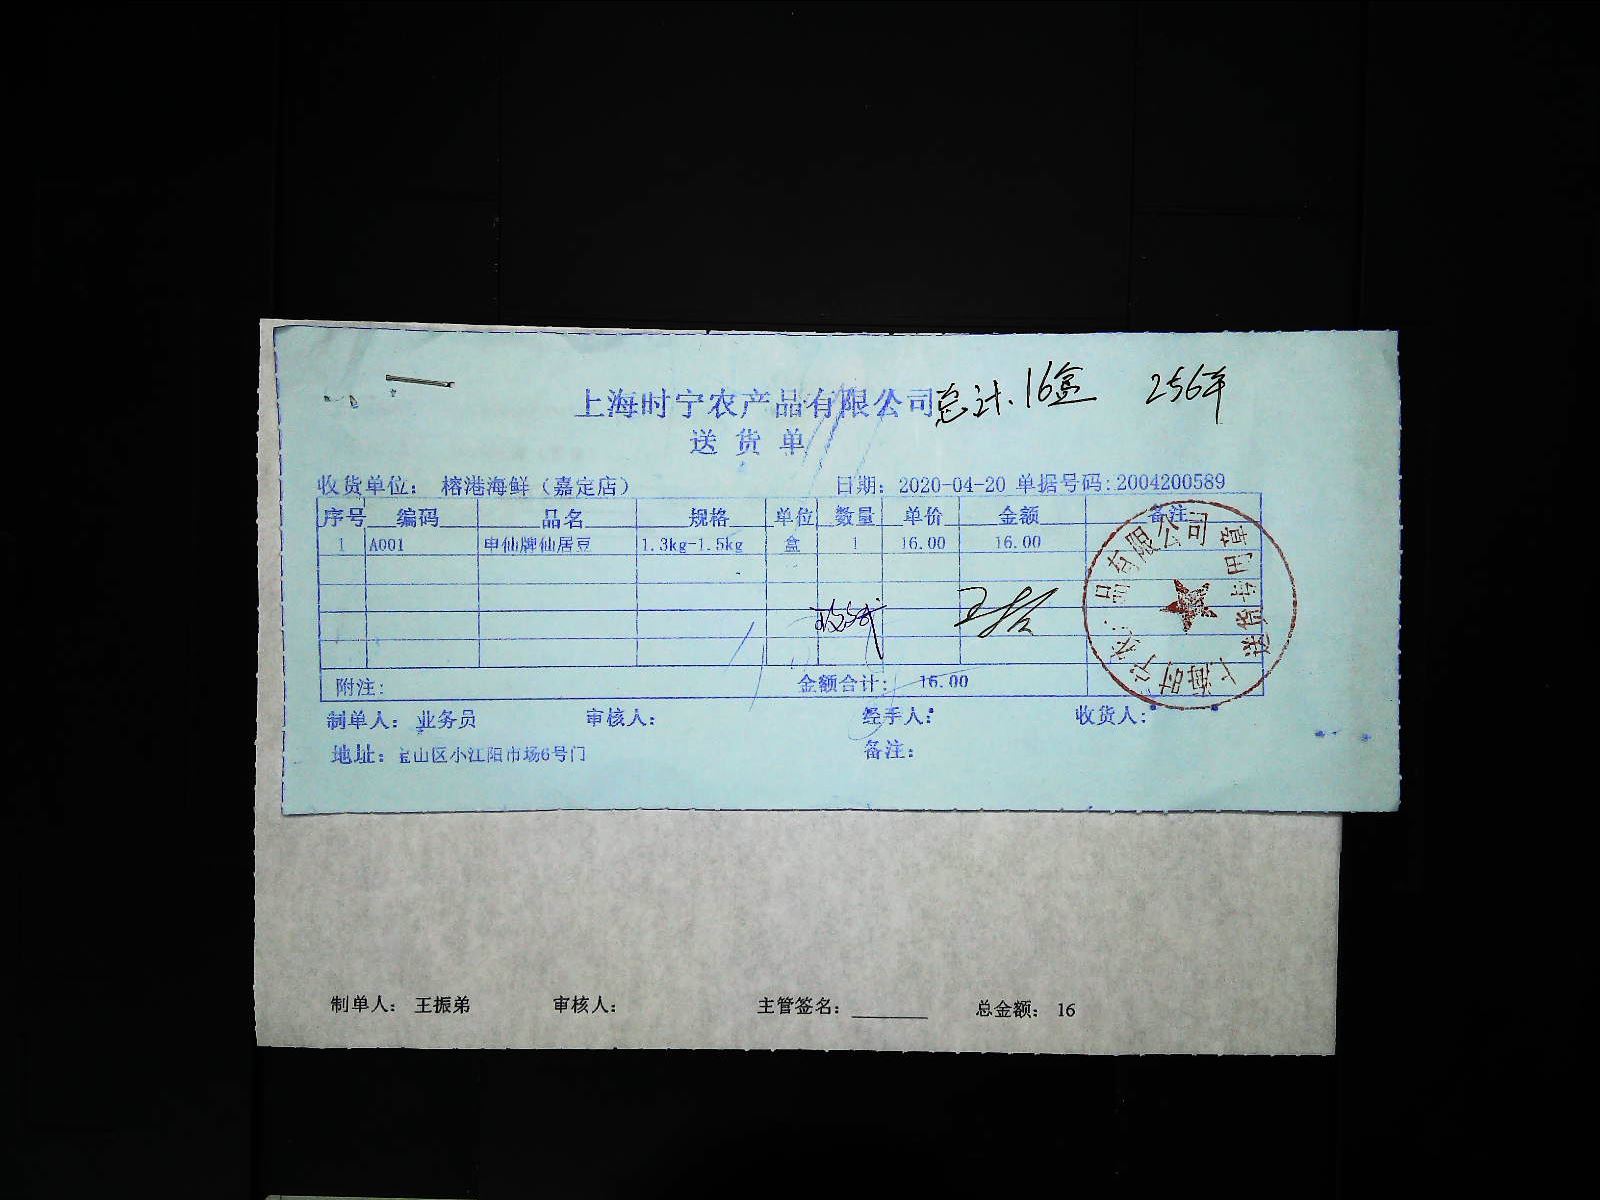 上海时宁农产品有限公司 总计.16盒 256年
送货单
收货单位： 榕港海鲜（嘉定店） 日期： 2020-04-20 单据号码:2004200589
序号 编码 品名 规格 单位 数量 单价 金额 备注
1 A001 申仙牌仙居豆 1.3kg-1.5kg 盒 1 16.00 16.00
附注: 金额合计: 16.00
制单人： 业务员 审核人： 经手人： 收货人：
地址： 宝山区小江阳市场6号门 备注：
上海时宁农产品有限公司
送货专用章
制单人： 王振弟 审核人： 主管签名： 总金额： 16